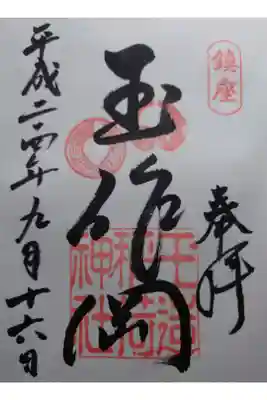 鎮座
奉拝
玉作岡
玉造
稲荷
神社
平成二四年九月十六日